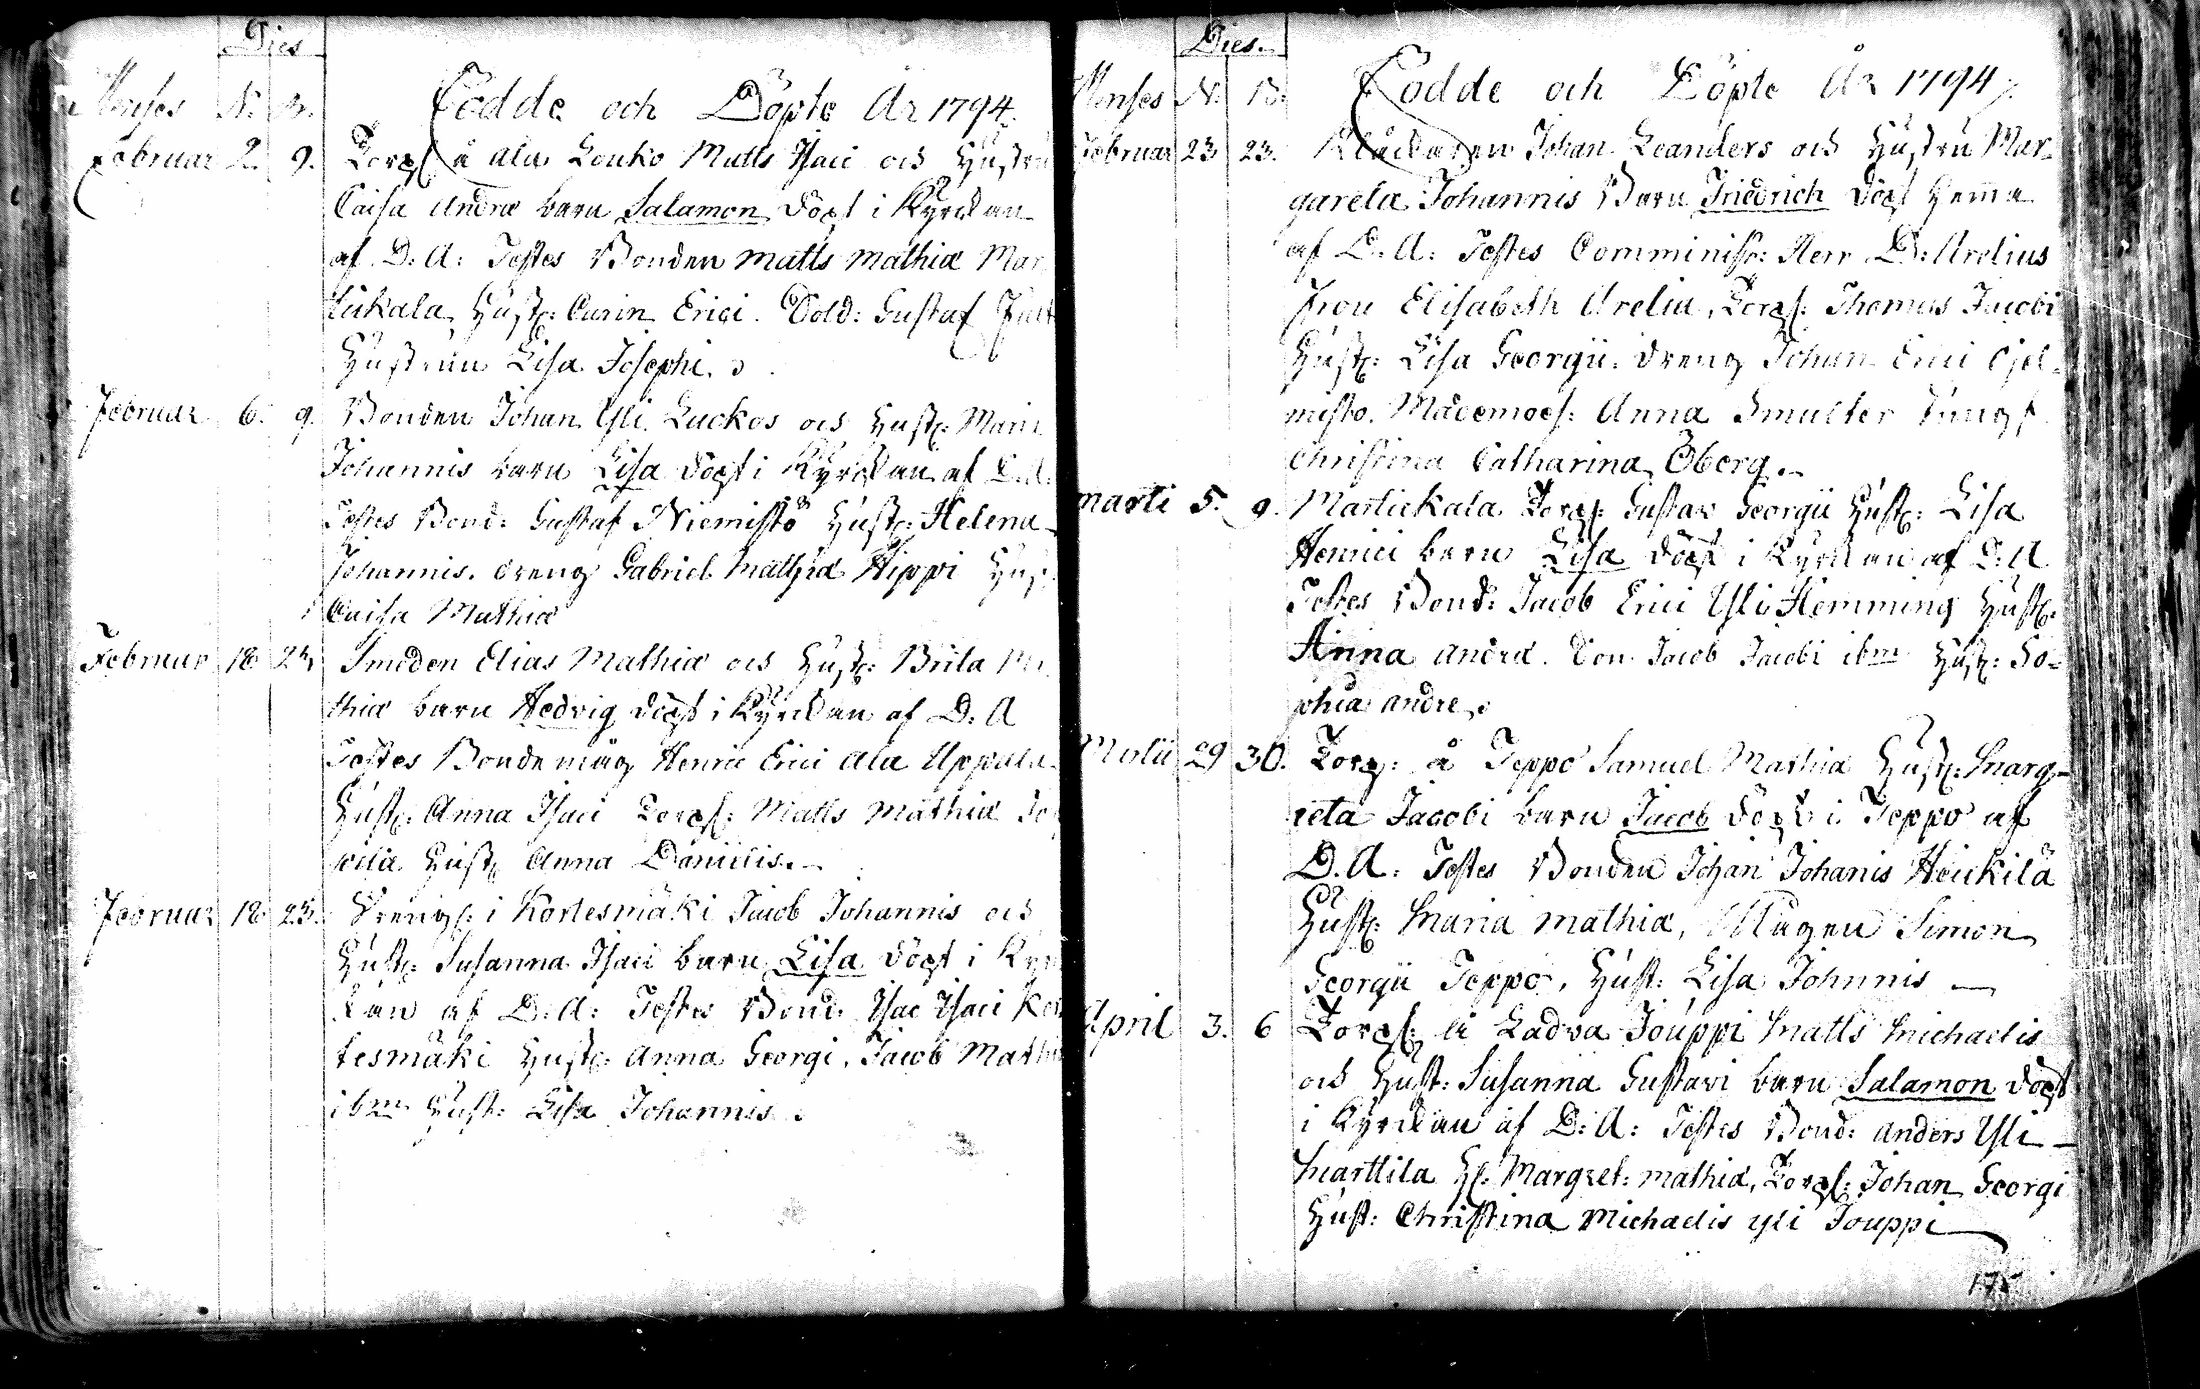 Dies
Menses N. B. Födde och Döpte År 1794.
Februar 2. 9. Torp: å Ala Louko Matts Isaci och Hustru
Caisa Andræ barn Salamon döpt i Kyrckan
af D: A: Testes Bonden Matts Mathiæ Mar
tickala, Hust: Carin Erici. Sold: Gustaf
Hustrun Lisa Josephi.
Februar 6. 9. Bonden Johan Yli Luckos och Hust: Maria
Johannis barn Lisa döpt i Kyrckan af D: A:
Testes Bond: Gustaf Niemistö Hust: Helena
Johannis. dreng Gabriel Mathiæ Hippi Hust:
Caisa Mathiæ
Februar 18 23 Smeden Elias Mathiæ och Hust: Brita Ma
thiæ barn Hedvig döpt i Kyrckan af D: A
Testes Bondemåg Henric Erici Ala Uppala
Hust: Anna Isaci Torp: Matts Mathiæ
Hust: Anna Danielis.
Februar 18 23. Dreng: i Kortesmäki Jacob Johannis och
Hust: Susanna Isaci barn Lisa döpt i Kyrc
kan af D: A: Testes Bond: Isac Isaci Kor
tesmäki Hust: Anna Georgi, Jacob Mathiæ
ibm Hust: Lisa Johannis.
Dies.
Menses N. B. Födde och Döpte År 1794.
Februar 23 23. Klåckaren Johan Leanders och Hustru Mar-
gareta Johannis Barn Friedrich döpt hemma
af D: A: Testes Comminist: Herr D: Arelius
Frou Elisabeth Arelia, Torp: Thomas Jacobi
Hust: Lisa Georgii. dreng Johan Erici Ojal-
misto. Mademoes: Anna Smulter
Christina Catharina Öberg.
Marti 5. 9. Martickala Torp: Gustav Georgii Hust: Lisa
Henrici barn Lisa döpt i Kyrckan af D: A
Testes Bond: Jacob Erici Yli Hemming Hust:
Anna Andræ. Jacob Jacobi ibm Hust: So-
phia Andre.
Martii 29 30. Torp: å Teppo Samuel Mathiæ Hust: Marg-
reta Jacobi barn Jacob döpt i Teppo af
D. A: Testes Bonden Johan Johanis Heickilä
Hust: Maria Mathiæ, Mågen Simon
Georgii Teppo, Hust: Lisa Johnnis
April 3. 6 Torp: å Ladva Jouppi Matts Michaelis
och Hust: Susanna Gustavi barn Salamon döpt
i Kyrckan af D: A: Testes Bond: Anders Yli
Marttila H: Margret: Mathiæ, Torp: Johan Georgi
Hust: Christina Michaelis yli Jouppi
175